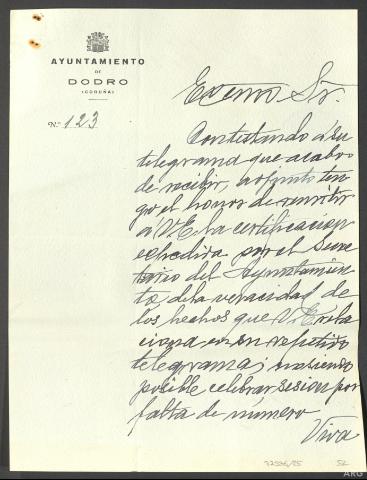 AYUNTAMIENTO
DE
DODRO
(CORUÑA)
N.º 123
Excmo Sr.
Contestando a su
telegrama que acabo
de recibir, adjunto ten
go el honor de remitir
a V.E. la certificacion
expedida por el Secre
tario del Ayuntamien
to, de la veracidad de
los hechos que V.E. rela
ciona en su repetido
telegrama; no siendo
posible celebrar sesion por
falta de número
Viva
ARG